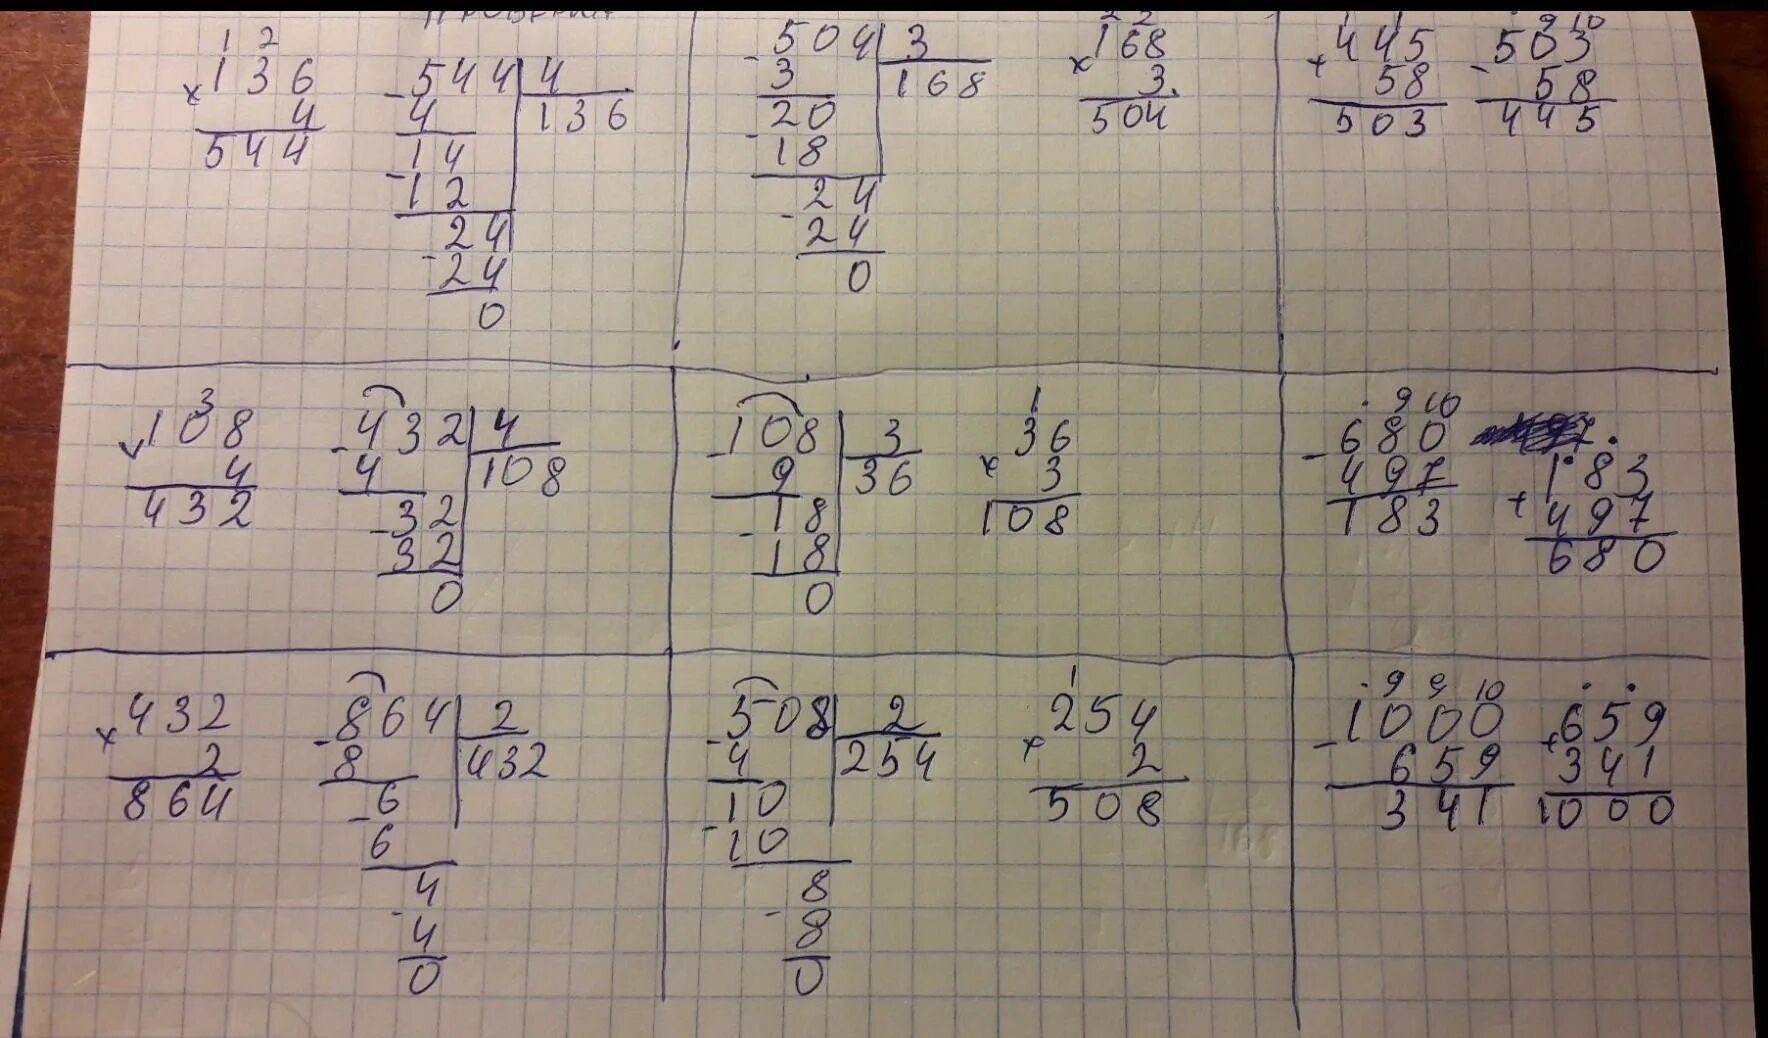 ПРОВЕРКА
1 2
× 136
4
544
- 544 | 4
4 136
- 14
12
- 24
24
0
- 504 | 3
3 168
- 20
18
- 24
24
0
2 2
× 168
3
504
1 1
+ 445
58
503
. 9 10
- 503
58
445
3
108
4
432
- 432 | 4
4 108
- 32
32
0
- 108 | 3
9 36
- 18
18
0
1
× 36
3
108
. 9 10
- 680
497
183
183
+ 497
680
× 432
2
864
- 864 | 2
8 432
- 6
6
- 4
4
0
- 508 | 2
4 254
- 10
10
- 8
8
0
1
× 254
2
508
. 9 9 10
- 1000
659
341
. .
+ 659
341
1000